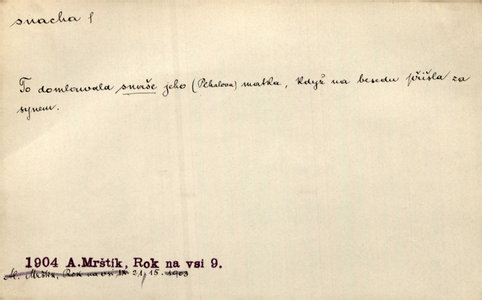 snacha f
To domlouvala snaše jeho (Pěkalova) matka, když na besedu přišla za
synem.
1904 A.Mrštík, Rok na vsi 9.
A. Mrštík, Rok na vsi IX 21, 15. 1903